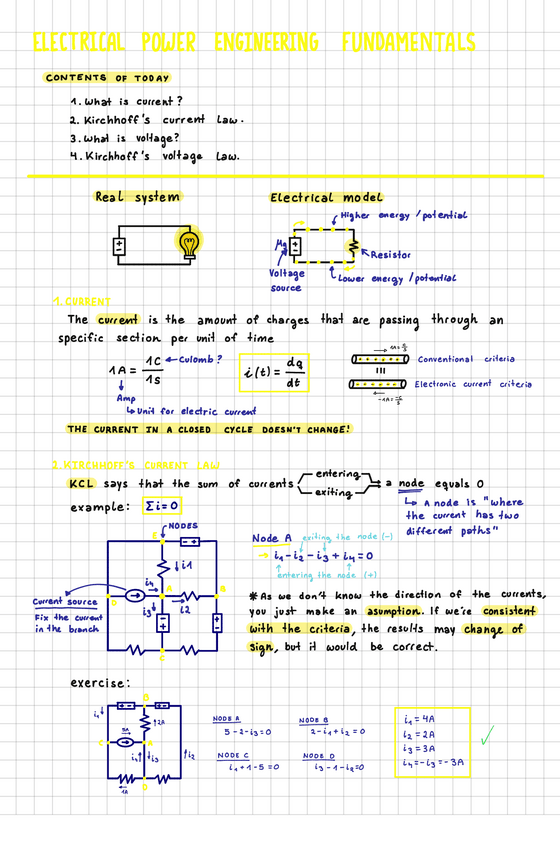 ELECTRICAL POWER ENGINEERING FUNDAMENTALS
CONTENTS OF TODAY
1. What is current?
2. Kirchhoff's current law.
3. What is voltage?
4. Kirchhoff's voltage law.
Real system
Electrical model
Higher energy/potential
Resistor
Voltage source
Lower energy/potential
1. CURRENT
The current is the amount of charges that are passing through an
specific section per unit of time
1A = 1C / 1s
Culomb?
Amp
Unit for electric current
i(t) = dq / dt
Conventional criteria
Electronic current criteria
THE CURRENT IN A CLOSED CYCLE DOESN'T CHANGE!
2. KIRCHHOFF'S CURRENT LAW
KCL says that the sum of currents entering exiting a node equals 0
example: Σi=0
A node is "where
the current has two
different paths"
NODES
E
i1
i4
D
A
B
i3
i2
C
Current source
Fix the current
in the branch
Node A
exiting the node (-)
→ i1-i2-i3+i4=0
entering the node (+)
*As we don't know the direction of the currents,
you just make an asumption. If we're consistent
with the criteria, the results may change of
sign, but it would be correct.
exercise:
B
i1
2A
5A
C
A
i4
i3
i2
D
1A
NODE A
5-2-i3=0
NODE B
2-i1+i2=0
NODE C
i1+1-5=0
NODE D
i3-1-i2=0
i1=4A
i2=2A
i3=3A
i4=-i3=-3A
✓